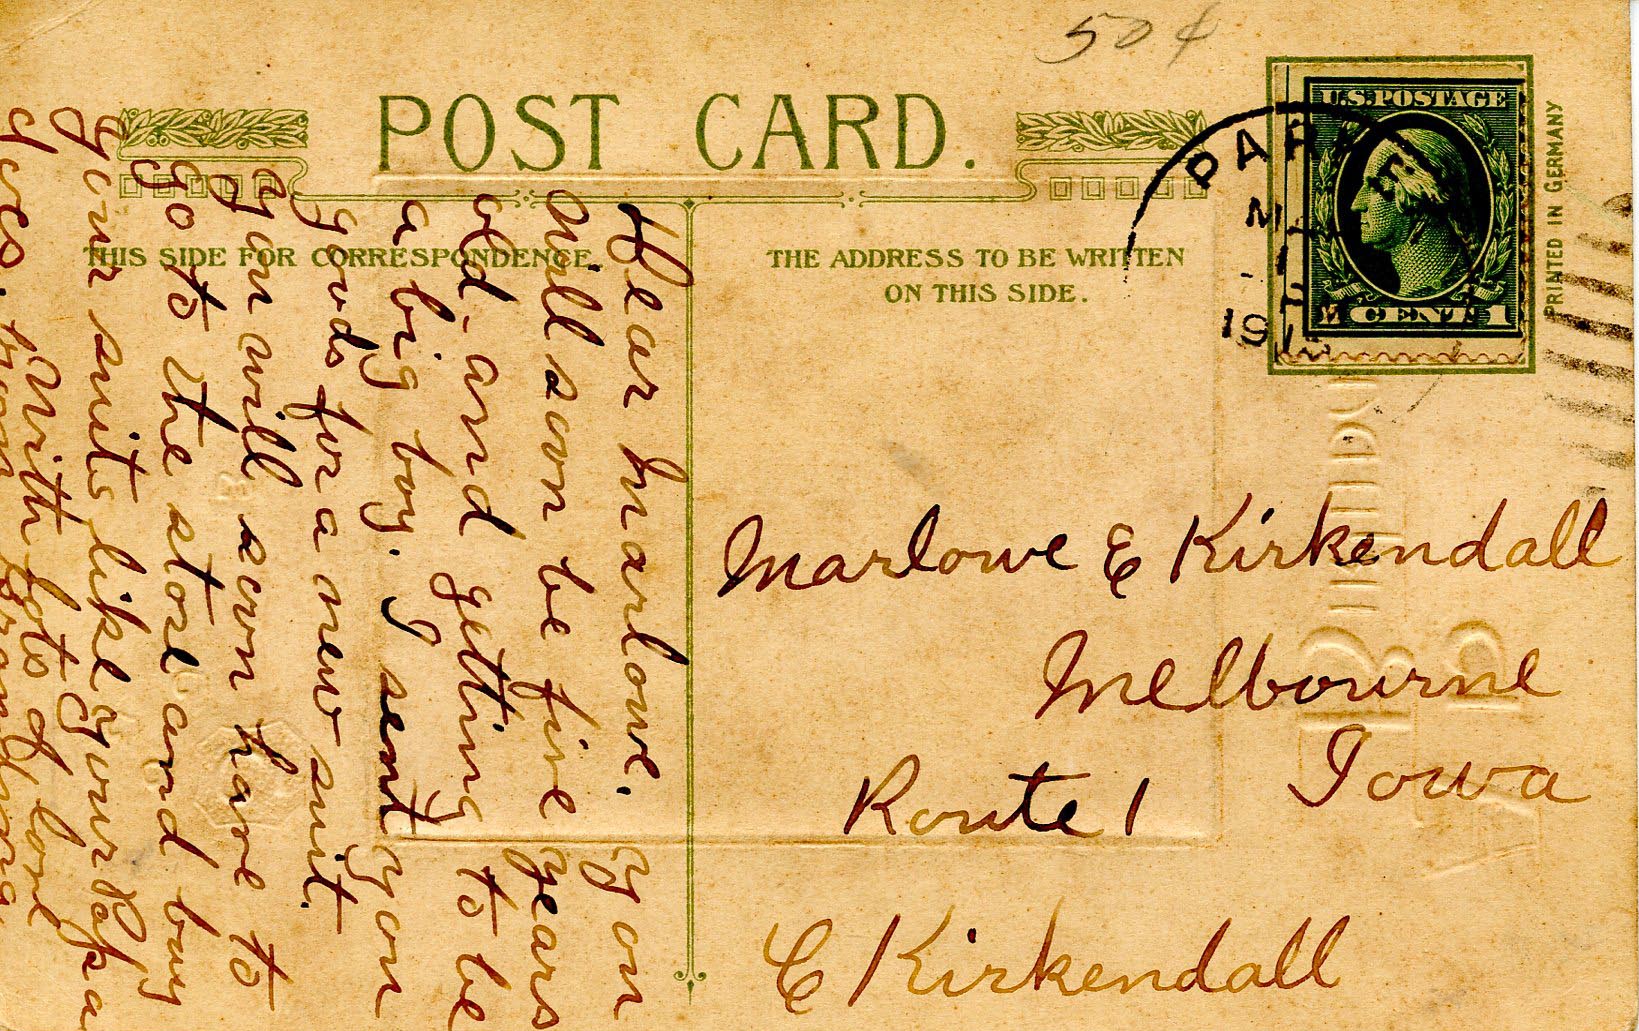 50¢
POST CARD.
THIS SIDE FOR CORRESPONDENCE.
THE ADDRESS TO BE WRITTEN
ON THIS SIDE.
U.S. POSTAGE
1 CENT 1
PRINTED IN GERMANY
PAR
19
Dear Marlowe. you
will soon be five years
old - and getting to be
a big boy. I sent you
goods for a new suit.
you will soon have to
go to the store and buy
your suits like your Papa
does.
With lots of love
from Grandma
Marlowe E Kirkendall
Melbourne
Iowa
Route 1
C Kirkendall